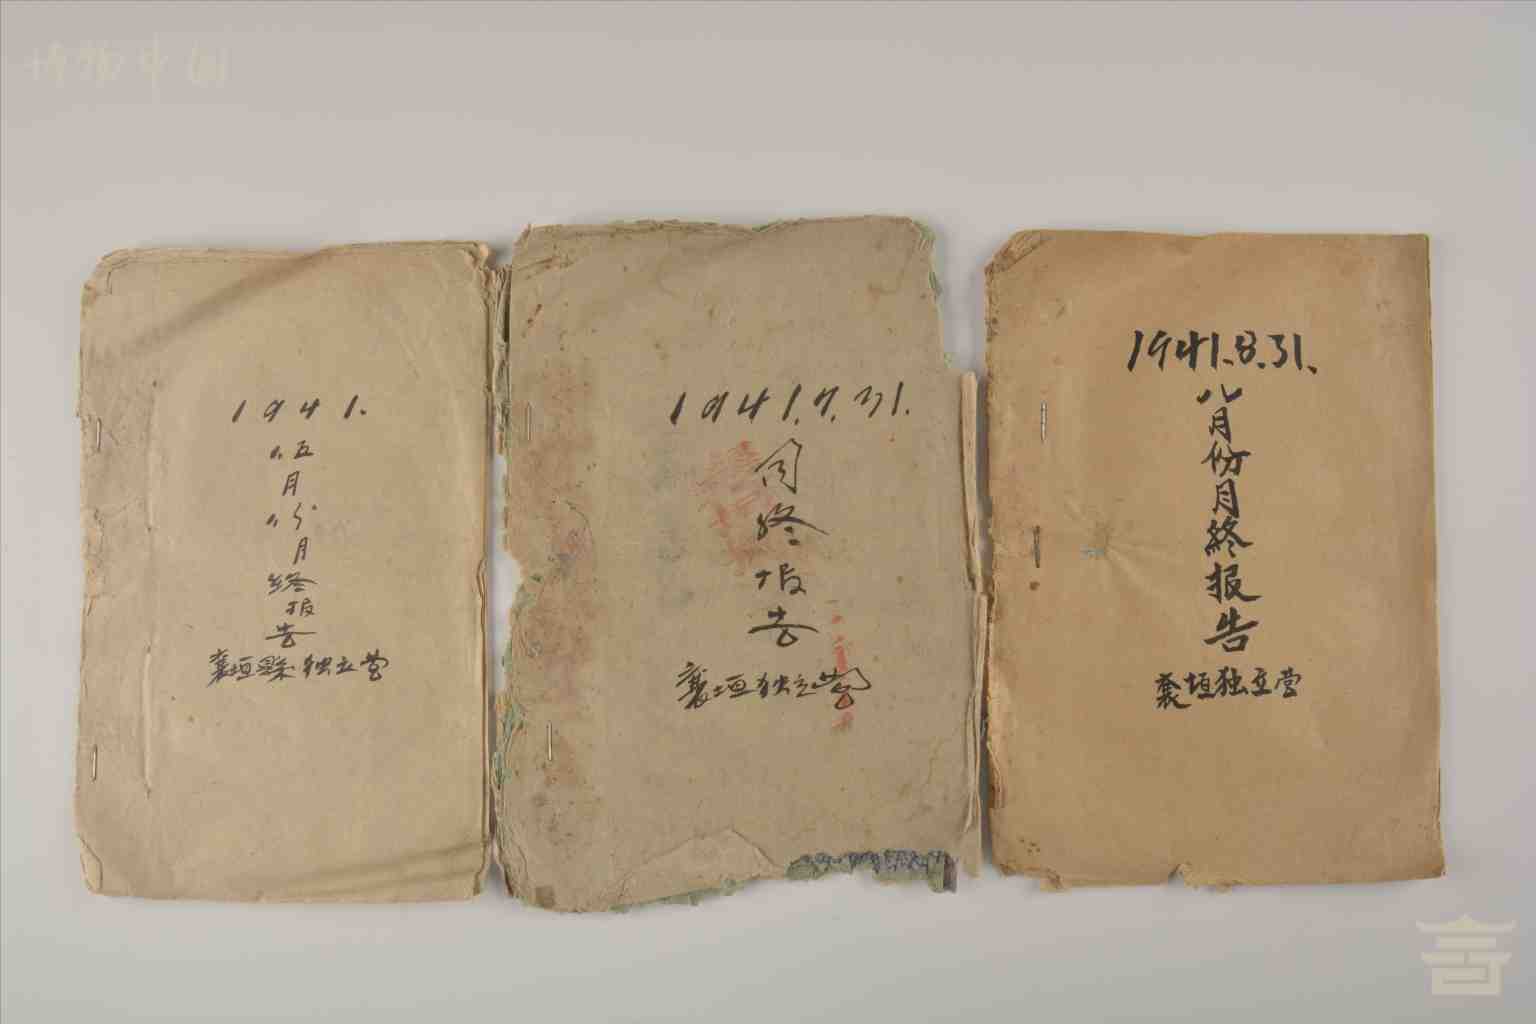 博物中国
1941.
伍月份月终报告
襄垣县独立营
1941.7.31.
月终报告
襄垣独立营
1941.8.31.
八月份月終报告
襄垣独立营